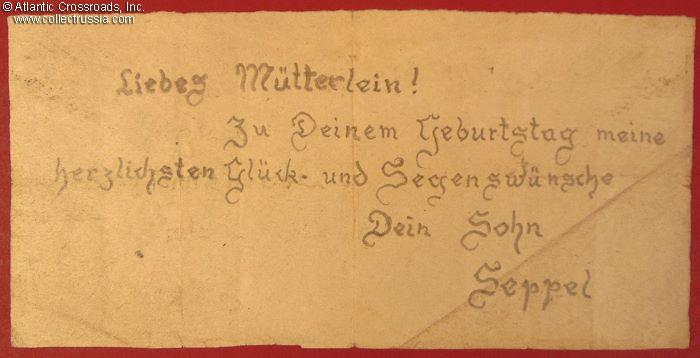 © Atlantic Crossroads, Inc.
www.collectrussia.com
Liebes Mütterlein!
Zu Deinem Geburtstag meine
herzlichsten Glück- und Segenswünsche
Dein Sohn
Seppel